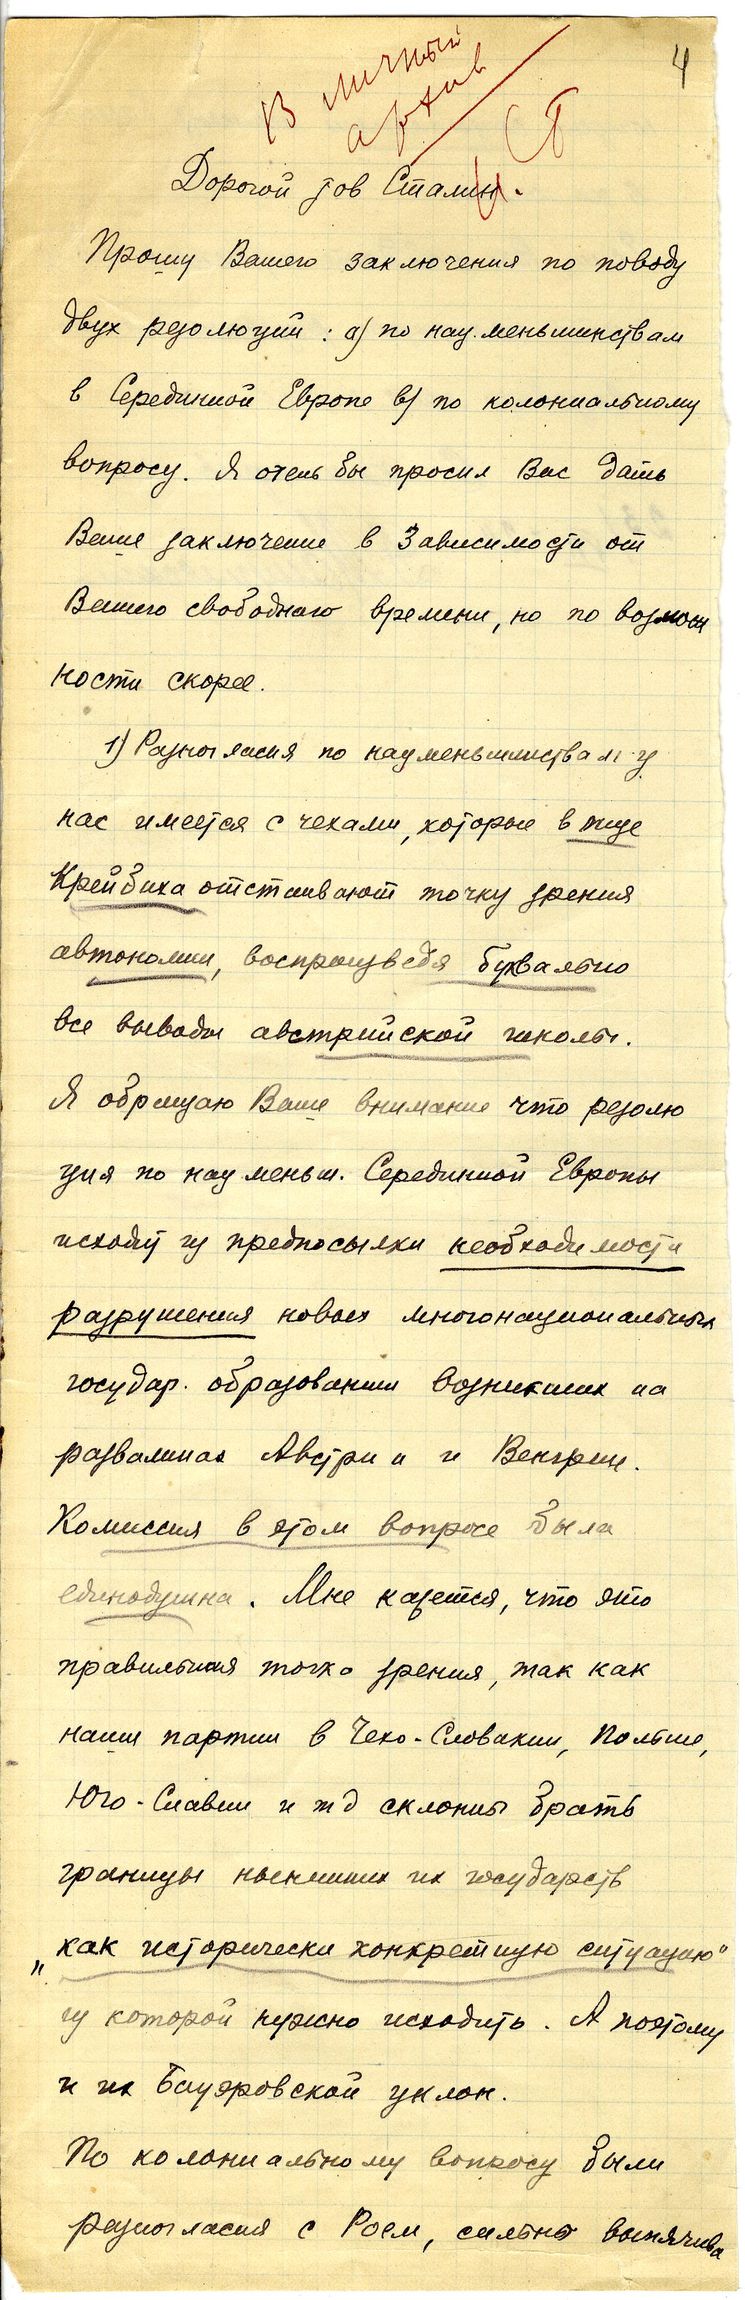 4
В личный
архив
Ст
Дорогой тов Сталин.
Прошу Вашего заключения по поводу
двух резолюций: а) по нац. меньшинствам
в Серединной Европе в) по колониальному
вопросу. Я очень бы просил Вас дать
Ваше заключение в зависимости от
Вашего свободнаго времени, но по возмож
ности скорее.
1) Разногласия по нац меньшинствам у
нас имеется с чехами, которые в лице
Крейбиха отстаивают точку зрения
автономии, воспроизведя буквально
все выводы австрийской школы.
Я обращаю Ваше внимание что резолю
ция по нац меньш. Серединной Европы
исходит из предпосылки необходимости
разрушения новых многонациональных
государ. образований возникших на
развалинах Австрии и Венгрии.
Комиссия в этом вопросе была
единодушна. Мне кажется, что это
правильная точка зрения, так как
наши партии в Чехо-Словакии, Польше,
Юго-Славии и т д склонны брать
границы нынешних их государств
„как исторически конкретную ситуацию"
из которой нужно исходить. А поэтому
и их Бауэровской уклон.
По колониальному вопросу были
разногласия с Роем, сильно выпячива